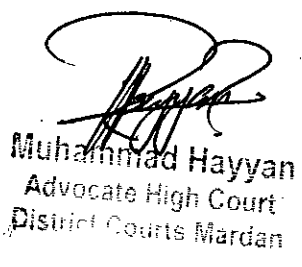 Hayyan
Muhammad Hayyan
Advocate High Court
District Courts Mardan